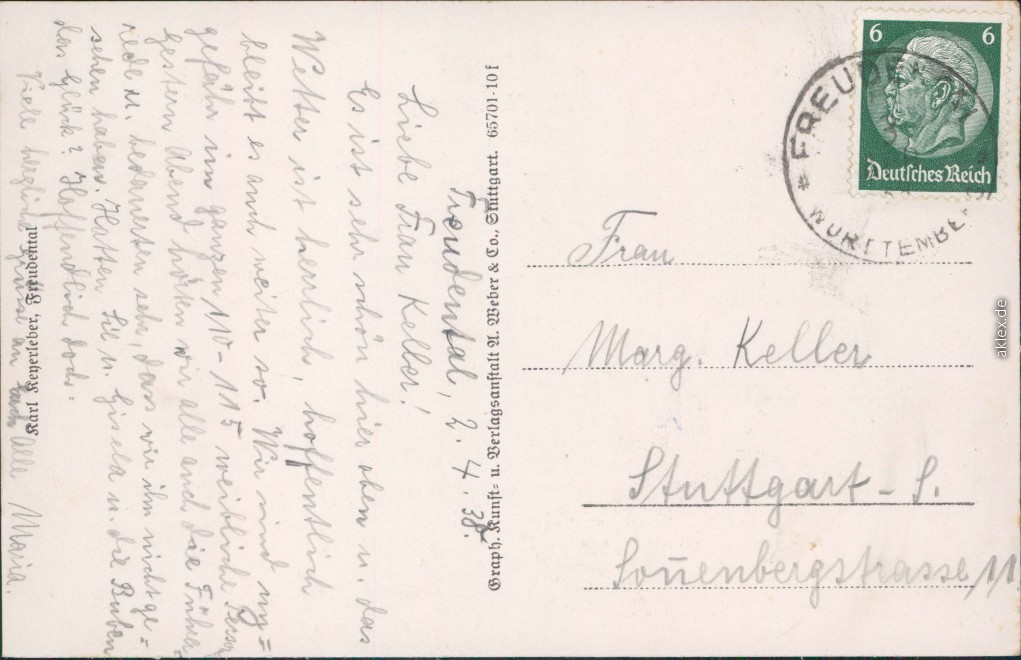 Freudental, 2.4.38.
Liebe Frau Keller!
Es ist sehr schön hier oben u. das
Wetter ist herrlich, hoffentlich
bleibt es auch weiter so. Wir sind un=
gefähr im ganzen 110-115 weibliche Person
gestern Abend hörten wir alle auch die Führer
rede u. bedauerten sehr, dass wir ihn nicht ge=
sehen haben. Hatten Sie u. Gisela u. die Buben
das Glück? Hoffentlich doch.
Viele herzliche Grüsse an Alle Maria.
Karl Keyerleber, Freudental
Graph. Kunst= u. Verlagsanstalt A. Weber & Co., Stuttgart. 65701-10f
6 6
Deutsches Reich
* FREUDENTAL *
WÜRTTEMBERG
Frau
Marg. Keller
Stuttgart-S.
Sonnenbergstrasse 11
aklex.de